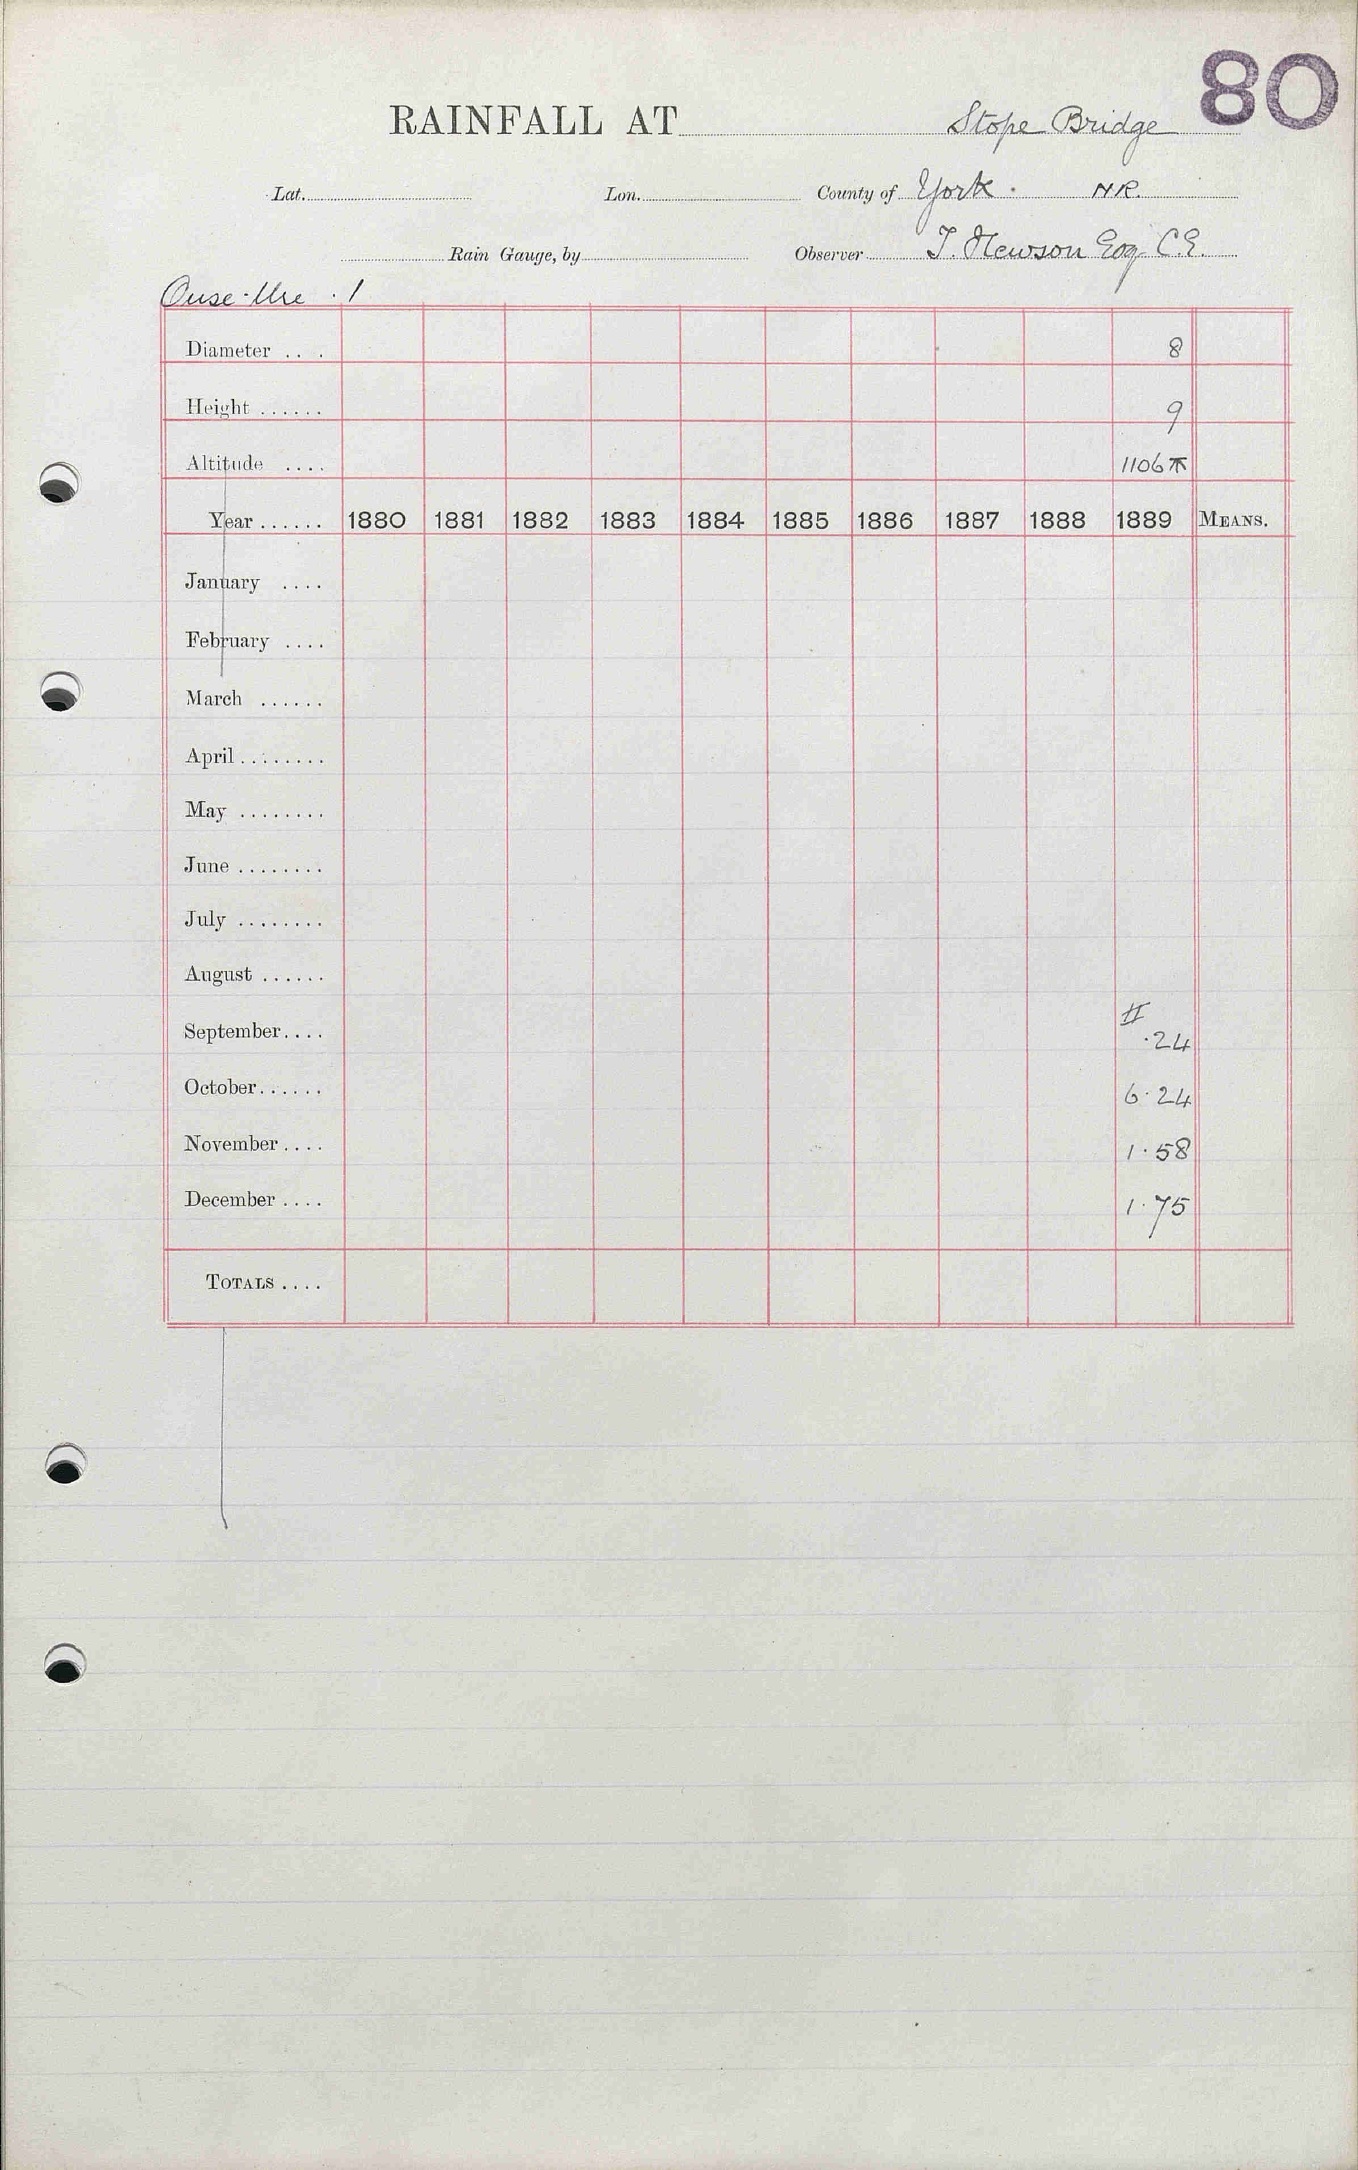 80
RAINFALL AT Stope Bridge
Lat. Lon. County of York. NR.
Rain Gauge, by Observer T. Newson Esq C.E.
Ouse-Ure . 1
Diameter .... 8
Height ...... 9
Altitude .... 1106
Year ...... 1880 1881 1882 1883 1884 1885 1886 1887 1888 1889 MEANS.
January ....
February ....
March ......
April ........
May ........
June ........
July ........
August ......
September.... # .24
October...... 6.24
November.... 1.58
December.... 1.75
TOTALS ....